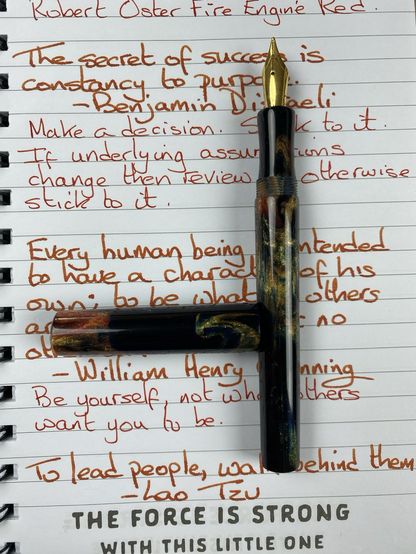 Robert Oster Fire Engine Red.
The secret of success is
constancy to
-Benjamin
Make a decision. to it.
If underlying
change then review otherwise
stick to it.
Every human being
to have a of his
own; to be others
no
-William Henry
Be yourself, not others
want you to be.
To lead people, behind them
-Lao Tzu
THE FORCE IS STRONG
WITH THIS LITTLE ONE